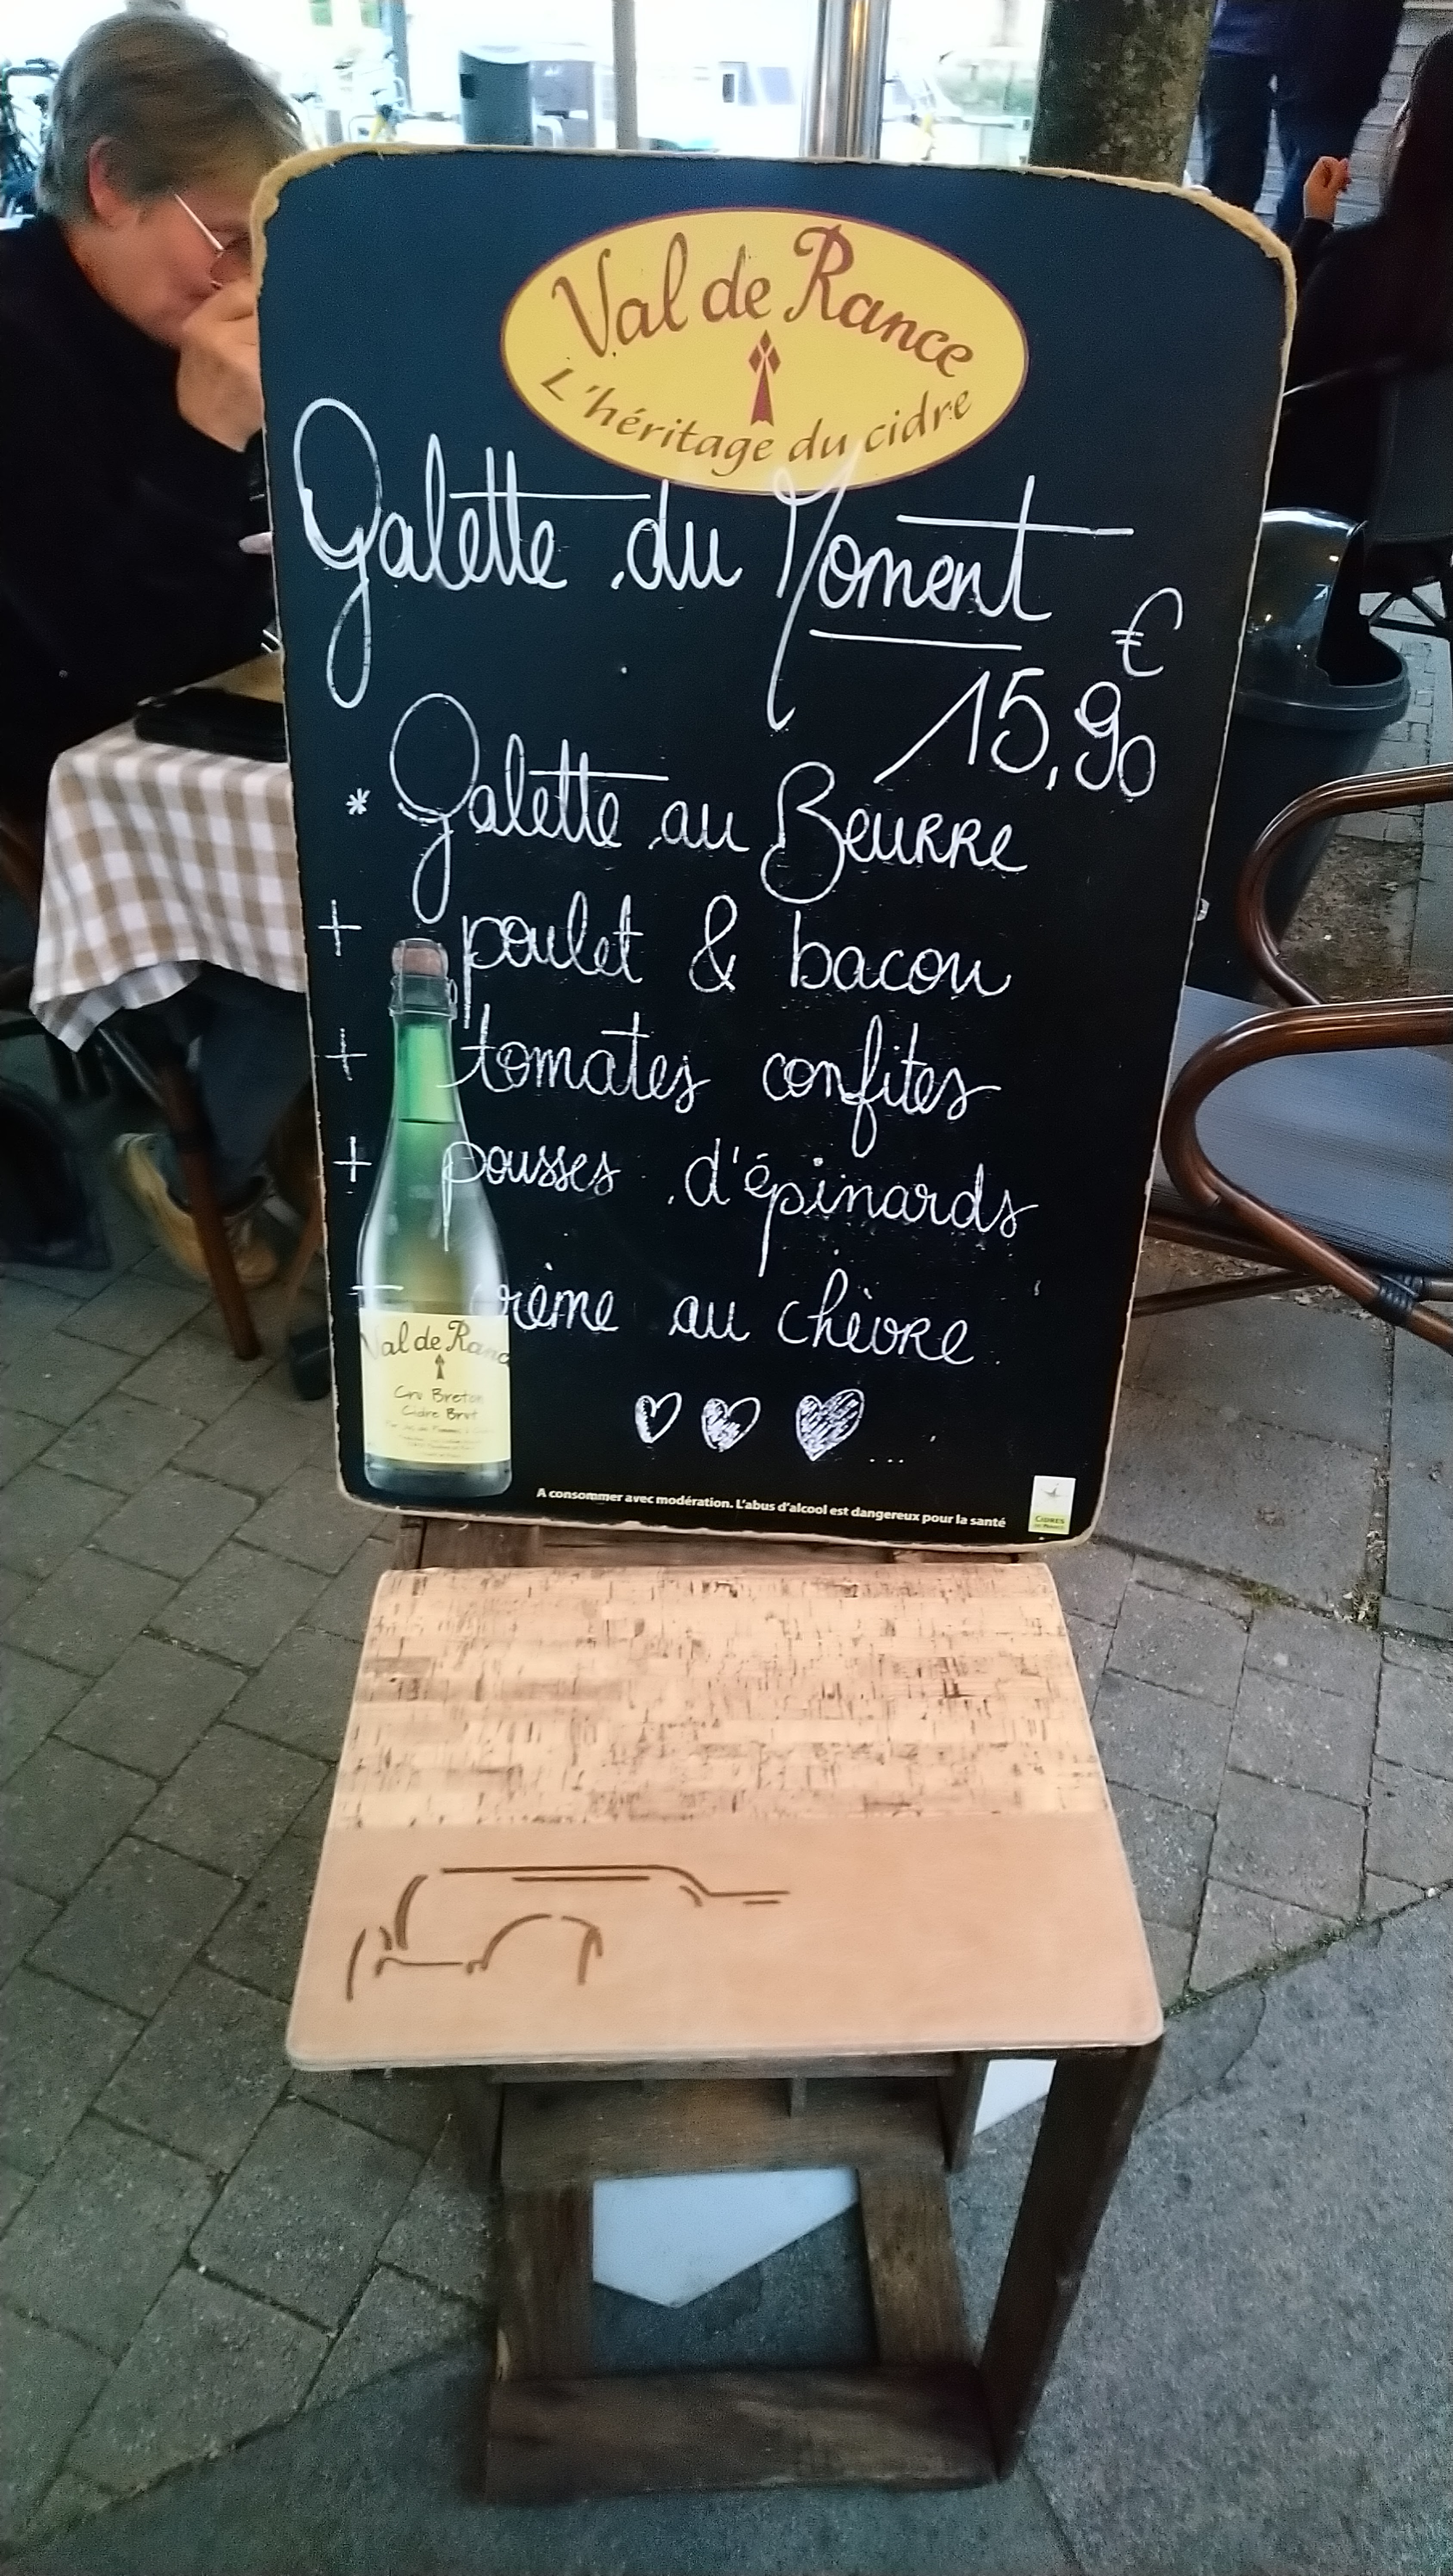 Val de Rance
L'héritage du cidre
Galette du Moment
€
15,90
* Galette au BeuRRe
+ poulet & bacon
+ tomates confites
+ pousses d'épinards
+ crème au chèvRe
...
Val de Ranc
Cru Breton
Cidre Brut
A consommer avec modération. L'abus d'alcool est dangereux pour la santé
CIDRES